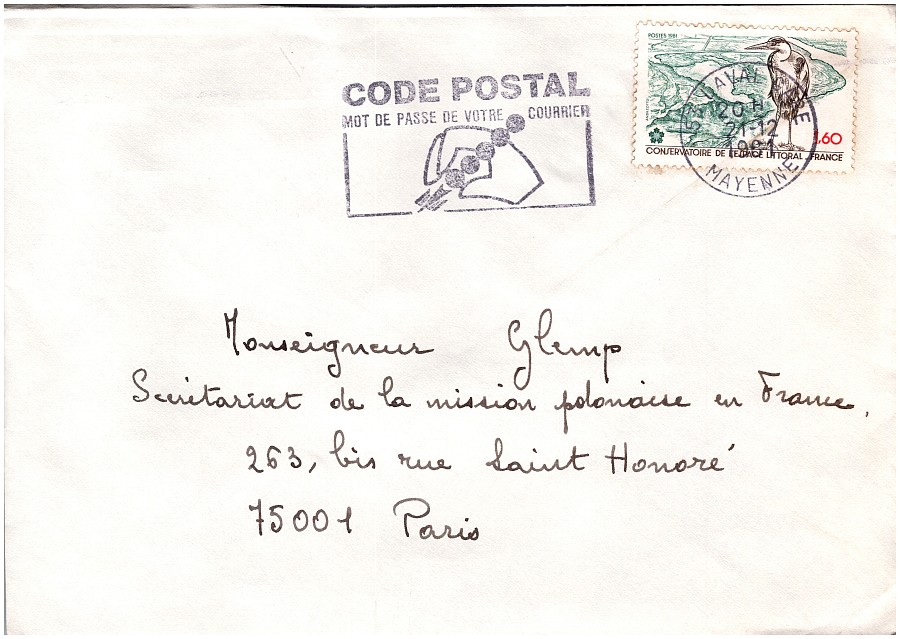 CODE POSTAL
MOT DE PASSE DE VOTRE COURRIER
POSTES 1981
1,60
CONSERVATOIRE DE L'ESPACE LITTORAL FRANCE
LAVAL
20 H
21-12
1981
MAYENNE
Monseigneur Glemp
Secrétariat de la mission polonaise en France,
263, bis rue Saint Honoré
75001 Paris